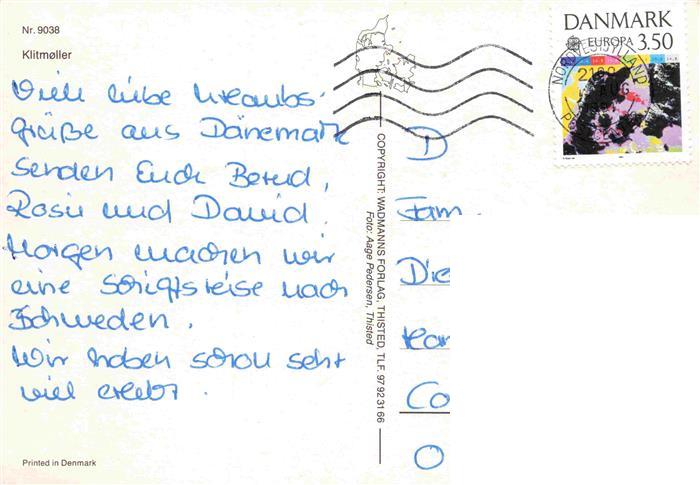 Nr. 9038
Klitmøller
Viele liebe Urlaubs-
grüße aus Dänemark
senden Euch Bernd,
Rosii und David.
Morgen machen wir
eine Schiffsreise nach
Schweden.
Wir haben schon sehr
viel erlebt.
Printed in Denmark
COPYRIGHT: WADMANNS FORLAG, THISTED, TLF. 97 92 31 66
Foto: Aage Pedersen, Thisted
DANMARK
EUROPA 3.50
D
Fam
Die
Co
O